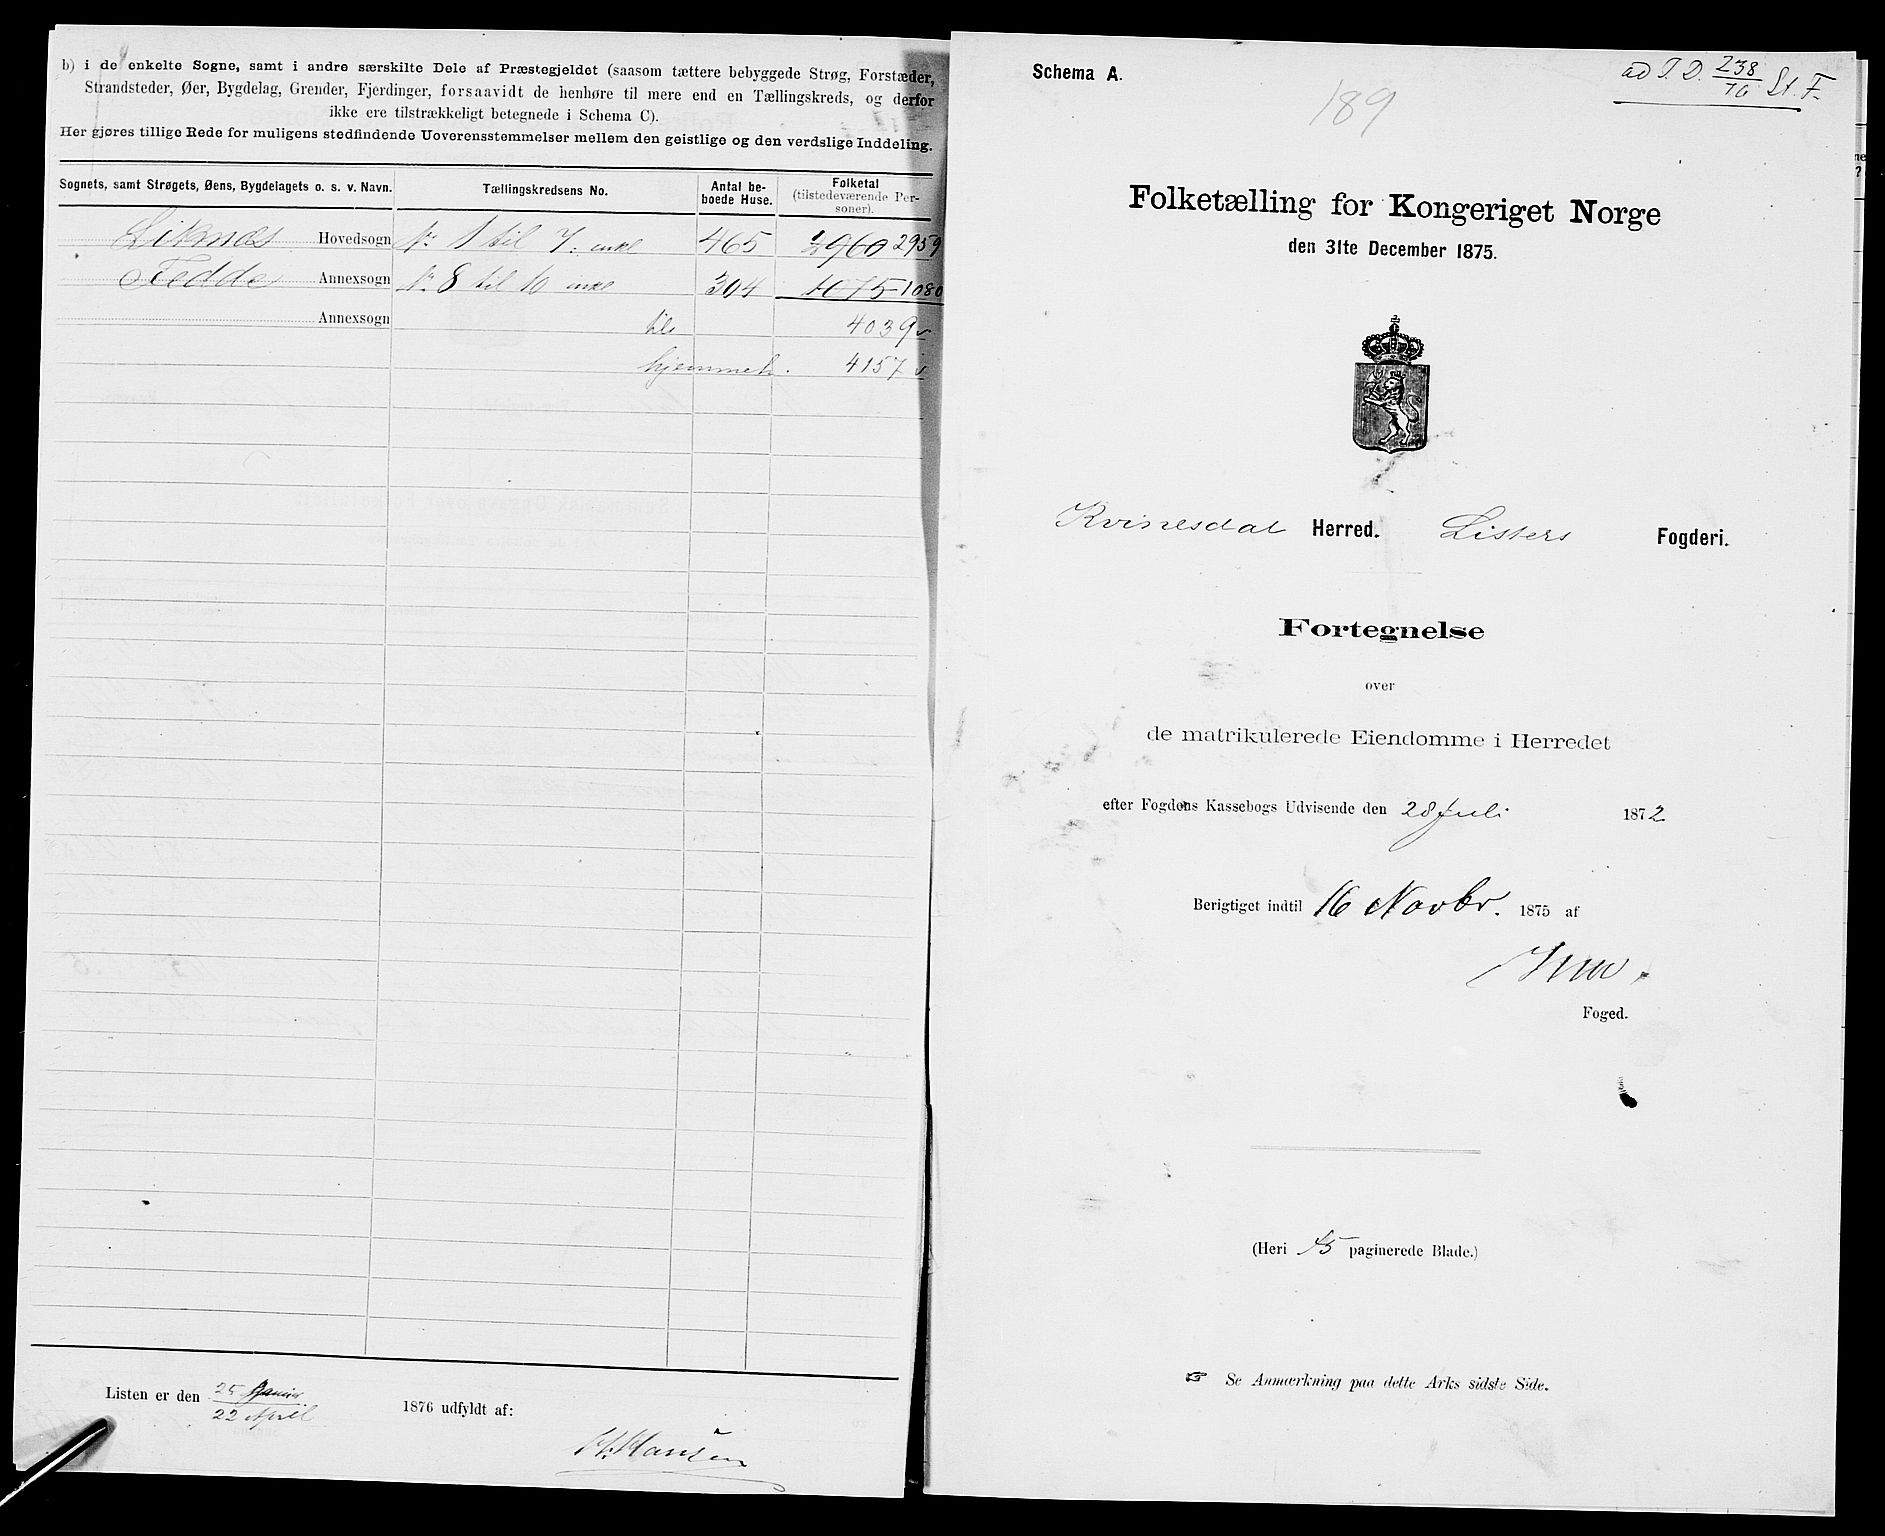 b) i de enkelte Sogne, samt i andre særskilte Dele af Præstegjeldet (saasom tættere bebyggede Strøg, Forstæder,
Strandsteder, Øer, Bygdelag, Grender, Fjerdinger, forsaavidt de henhøre til mere end en Tællingskreds, og derfor
ikke ere tilstrækkeligt betegnede i Schema C).
Her gjøres tillige Rede for muligens stedfindende Uoverensstemmelser mellem den geistlige og den verdslige Inddeling.
Sognets, samt Strøgets, Øens, Bygdelagets o. s. v. Navn. Tællingskredsens No. Antal be-boede Huse. Folketal (tilstedeværende Per-soner).
Liknæs Hovedsogn No 1 til 7. inkl 465 2960 2959
Fedde Annexsogn No 8 til 10 inkl 304 1075 1080
Annexsogn tils 4039
hjemmeh. 4157
Listen er den 25 Januar
22 April
1876 udfyldt af:
H. Hansen
Schema A.
ad T. D. 238/76 St. F.
189
Folketælling for Kongeriget Norge
den 31te December 1875.
Kvinesdal Herred. Listers Fogderi.
Fortegnelse
over
de matrikulerede Eiendomme i Herredet
efter Fogdens Kassebogs Udvisende den 28 Juli 1872
Berigtiget indtil 16 Novbr. 1875 af
Foged.
(Heri 15 paginerede Blade.)
☞ Se Anmærkning paa dette Arks sidste Side.